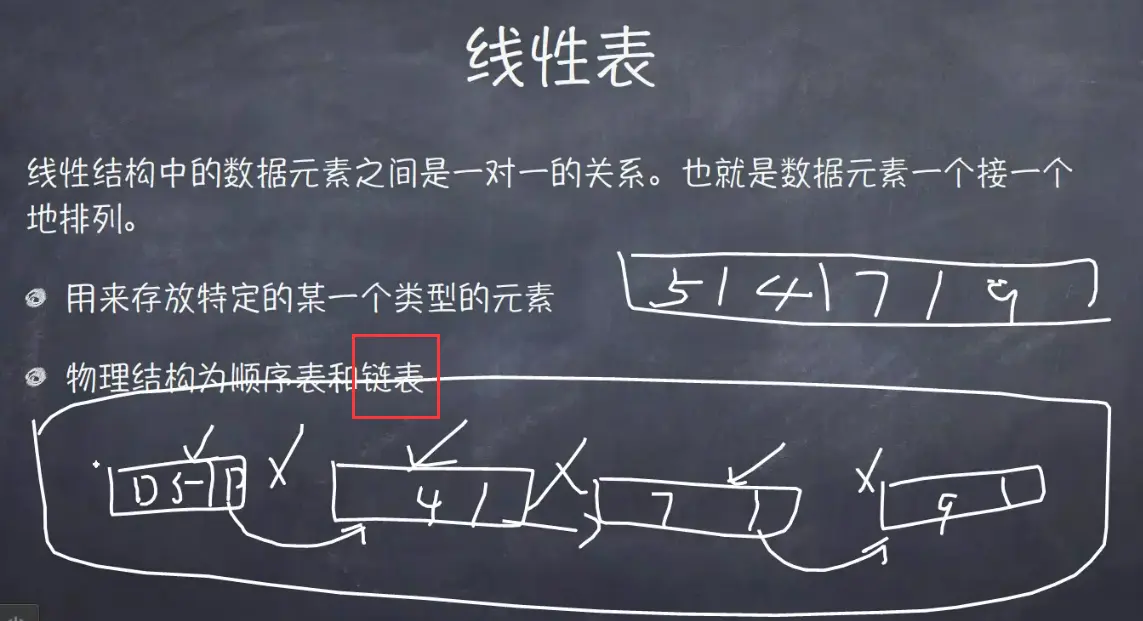 线性表
线性结构中的数据元素之间是一对一的关系。也就是数据元素一个接一个
地排列。
用来存放特定的某一个类型的元素
5 | 4 | 7 | 9
物理结构为顺序表和链表
4
7
9